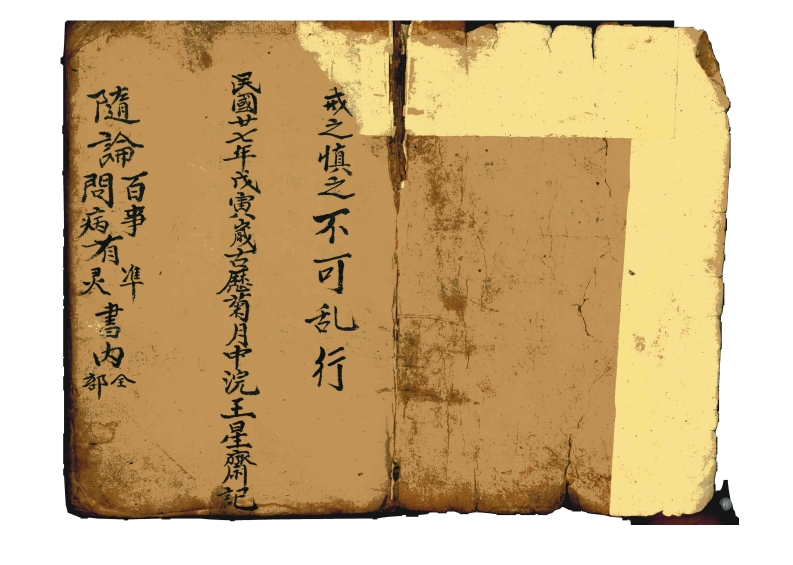 戒之慎之不可乱行
民國廿七年戊寅歲古歷菊月中浣王星齋記
隨論百事準
問病有灵書內全部